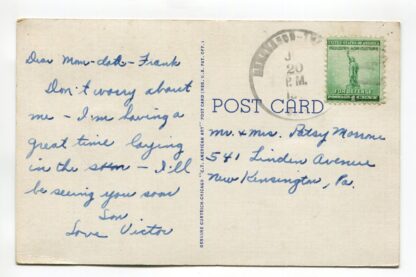 Dear Mom-dad-Frank
Don't worry about
me - I'm having a
great time laying
in the sun - I'll
be seeing you soon
Son
Love Victor
GENUINE CURTEICH-CHICAGO "C.T. AMERICAN ART" POST CARD (REG. U.S. PAT. OFF.)
20
P.M.
UNITED STATES OF AMERICA
INDUSTRY AGRICULTURE
FOR DEFENSE
POST CARD
Mr. & Mrs. Patsy Morrone
541 Linden Avenue
New Kensington, Pa.